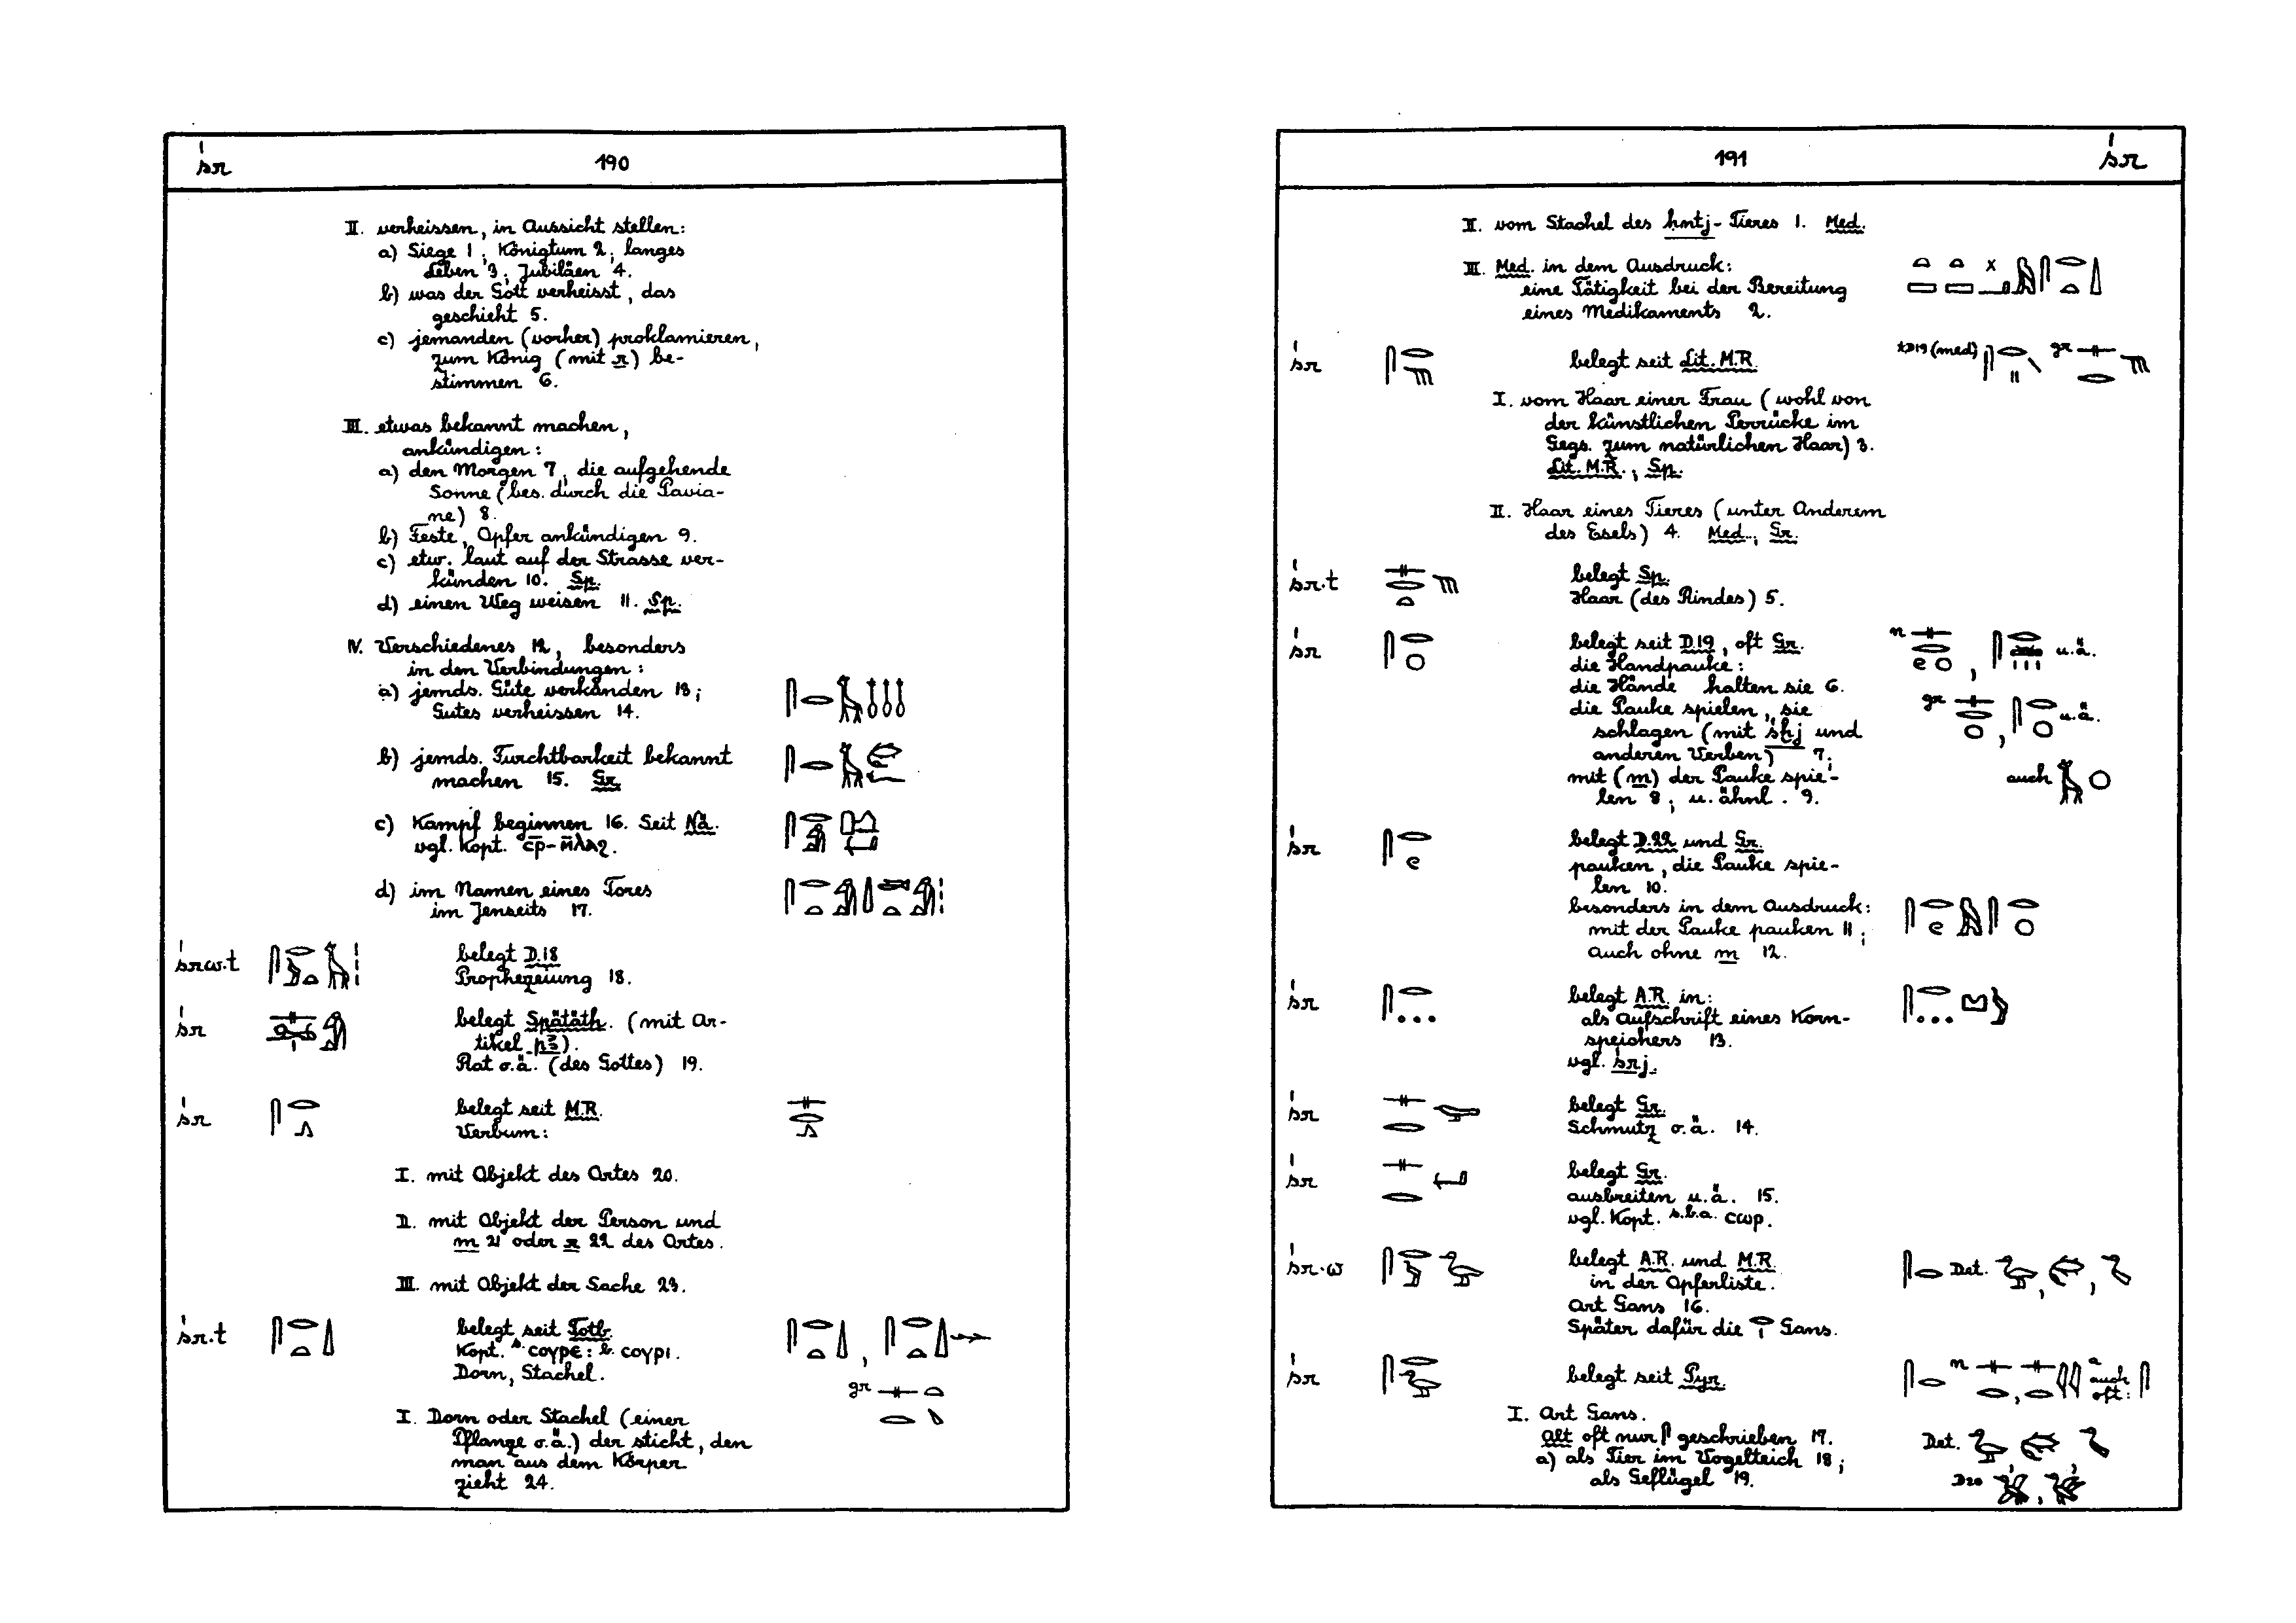 śr 190
II. verheissen, in Aussicht stellen:
a) Siege 1; Königtum 2; langes
Leben 3; Jubiläen 4.
b) was der Gott verheisst, das
geschieht 5.
c) jemanden (vorher) proklamieren,
zum König (mit r) be-
stimmen 6.
III. etwas bekannt machen,
ankündigen:
a) den Morgen 7, die aufgehende
Sonne (bes. durch die Pavia-
ne) 8.
b) Feste, Opfer ankündigen 9.
c) etw. laut auf der Strasse ver-
künden 10. Sp.
d) einen Weg weisen 11. Sp.
IV. Verschiedenes 12, besonders
in den Verbindungen:
a) jemds. Güte verkünden 13;
Gutes verheissen 14.
b) jemds. Furchtbarkeit bekannt
machen 15. Gr.
c) Kampf beginnen 16. Seit Nä.
vgl. Kopt. c̅p̅-m̅ⲗⲁϩ.
d) im Namen eines Tores
im Jenseits 17.
śrw.t belegt D.18
Prophezeiung 18.
śr belegt Spätäth. (mit Ar-
tikel pꜣ).
Rat o.ä. (des Gottes) 19.
śr belegt seit M.R.
Verbum:
I. mit Objekt des Ortes 20.
II. mit Objekt der Person und
m 21 oder r 22 des Ortes.
III. mit Objekt der Sache 23.
śr.t belegt seit Totb.
Kopt. s. ⲥⲟⲩⲣⲉ: b. ⲥⲟⲩⲣⲓ.
Dorn, Stachel.
gr
I. Dorn oder Stachel (einer
Pflanze o.ä.) der sticht, den
man aus dem Körper
zieht 24.
191 śr
II. vom Stachel des ḥntj-Tieres 1. Med.
III. Med. in dem Ausdruck:
eine Tätigkeit bei der Bereitung
eines Medikaments 2.
śr belegt seit Lit. M.R. D19 (med) gr
I. vom Haar einer Frau (wohl von
der künstlichen Perrücke im
Gegs. zum natürlichen Haar) 3.
Lit. M.R., Sp.
II. Haar eines Tieres (unter Anderem
des Esels) 4. Med., Gr.
śr.t belegt Sp.
Haar (des Rindes) 5.
śr belegt seit D.19, oft Gr. n , u.ä.
die Handpauke:
die Hände halten sie 6.
die Pauke spielen, sie gr , u.ä.
schlagen (mit śḫj und
anderen Verben) 7;
mit (m) der Pauke spie- auch
len 8; u. ähnl. 9.
śr belegt D.22 und Gr.
pauken, die Pauke spie-
len 10.
besonders in dem Ausdruck:
mit der Pauke pauken 11;
auch ohne m 12.
śr belegt A.R. in:
als Aufschrift eines Korn-
speichers 13.
vgl. śrj.
śr belegt Gr.
Schmutz o.ä. 14.
śr belegt Gr.
ausbreiten u.ä. 15.
vgl. Kopt. s.b.a. ⲥⲱⲣ.
śr.w belegt A.R. und M.R. Det. , ,
in der Opferliste.
Art Gans 16.
Später dafür die Gans.
śr belegt seit Pyr. n , a auch oft:
I. Art Gans.
Alt oft nur geschrieben 17. Det. , ,
a) als Tier im Vogelteich 18;
als Geflügel 19. D20 ,